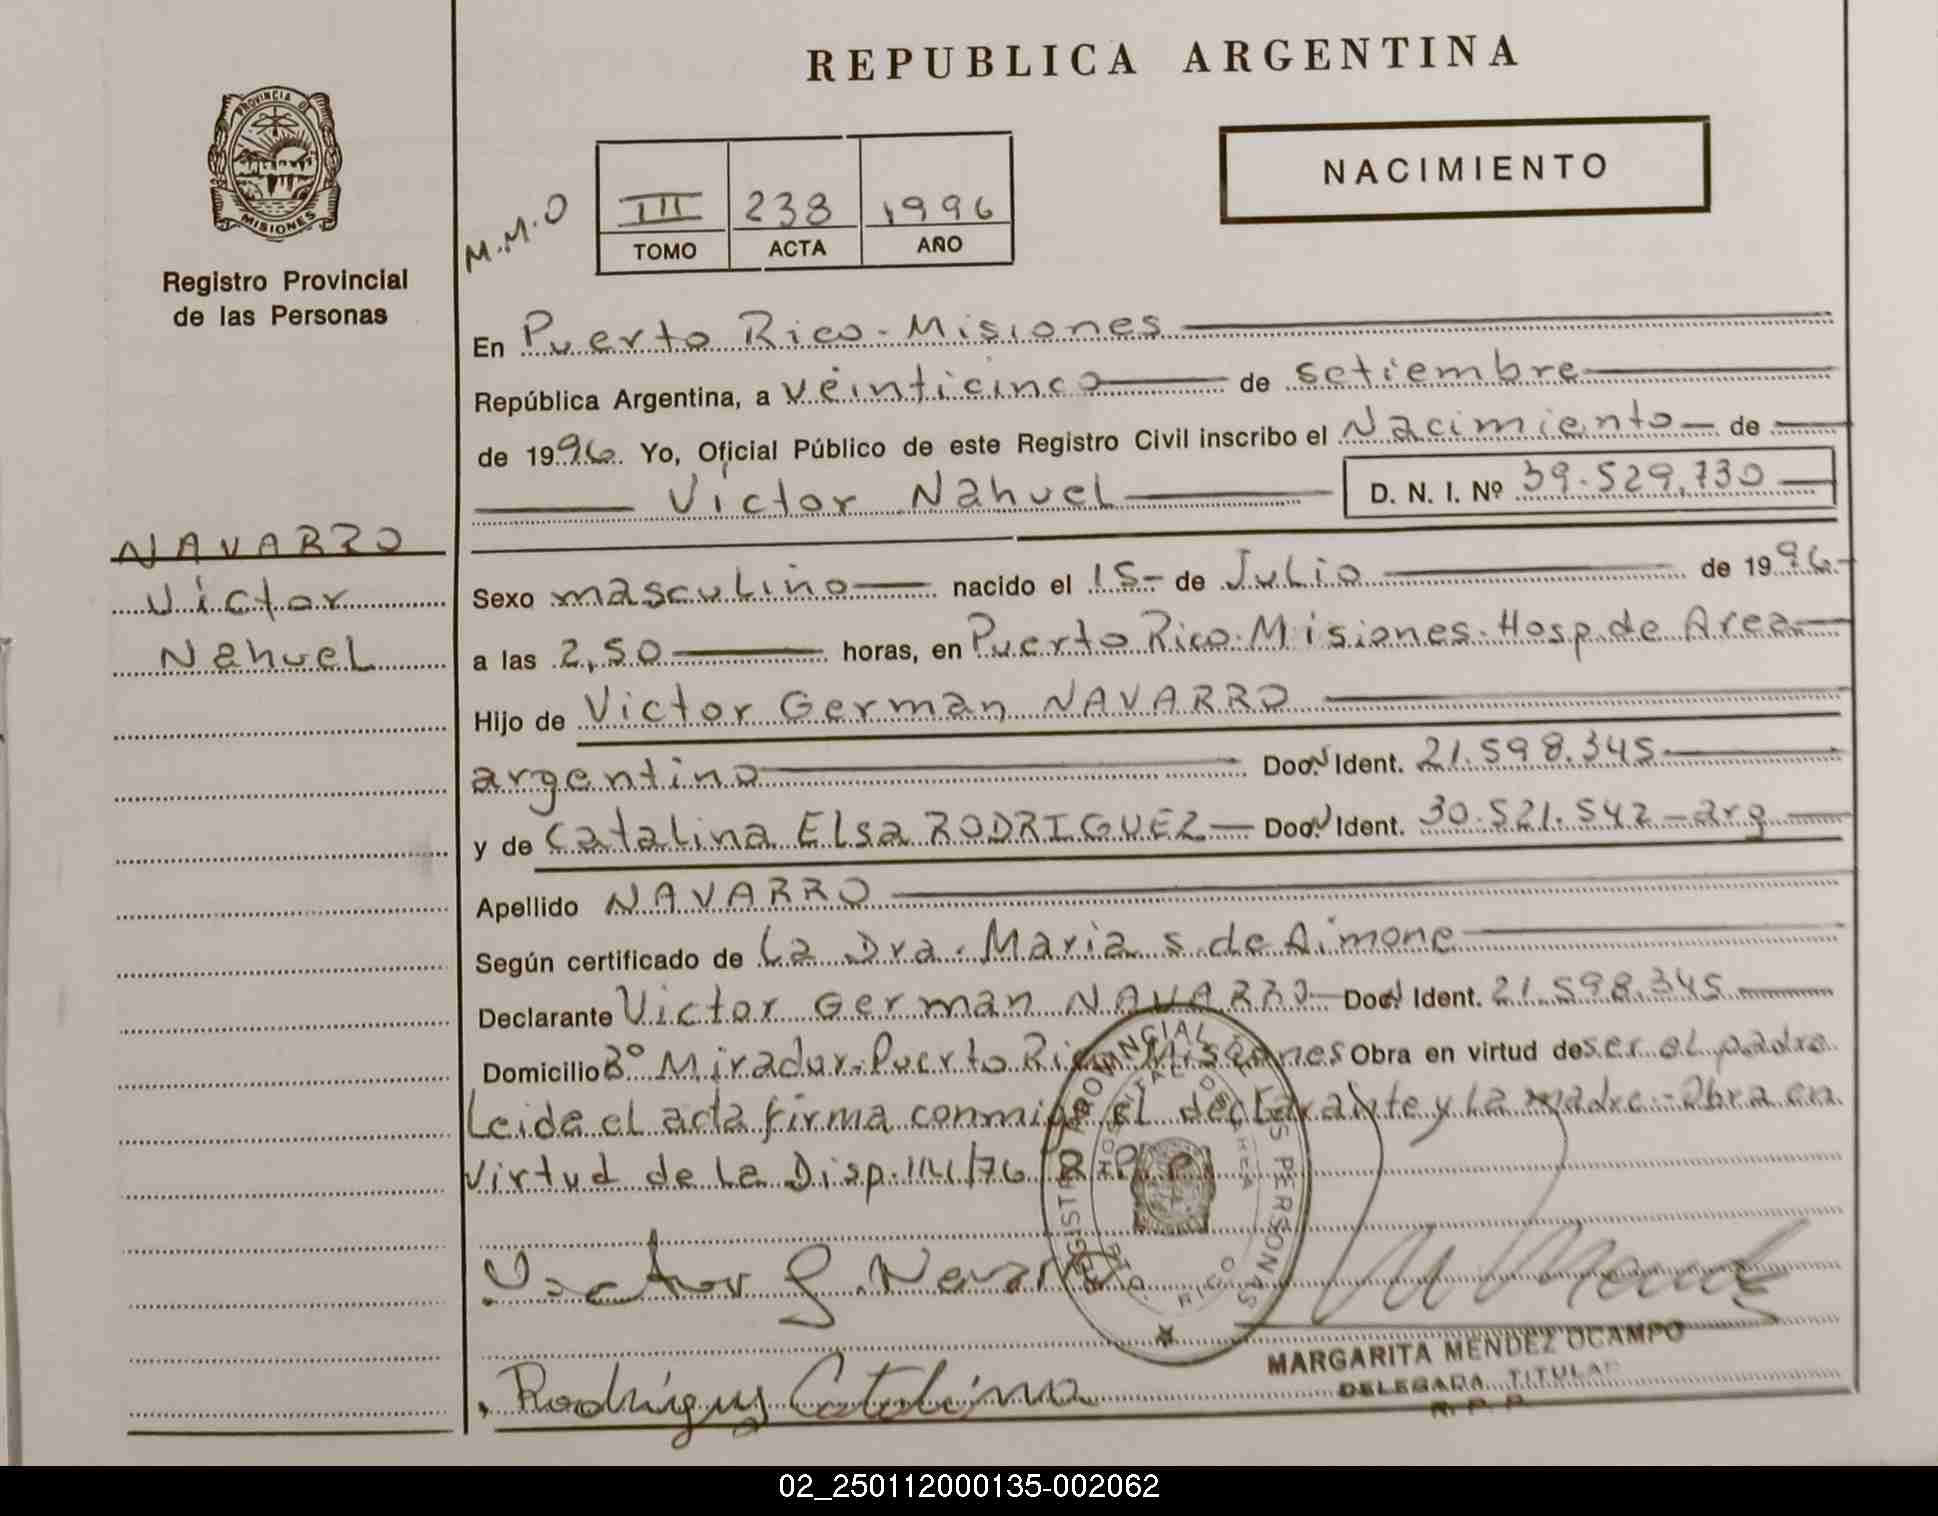 REPUBLICA ARGENTINA
PROVINCIA D
MISIONES
Registro Provincial
de las Personas
NACIMIENTO
M.M.O
III 238 1996
TOMO ACTA AÑO
En Puerto Rico - Misiones
República Argentina, a veinticinco de setiembre
de 1996. Yo, Oficial Público de este Registro Civil inscribo el Nacimiento de
Victor Nahuel D. N. I. Nº 39.529.730
NAVARRO
Victor
Nahuel
Sexo masculino nacido el 15 - de Julio de 1996
a las 2,50 horas, en Puerto Rico. Misiones. Hosp. de Area
Hijo de Victor German NAVARRO
argentino Doc. N Ident. 21.598.345
y de Catalina Elsa RODRIGUEZ Doc. N Ident. 30.521.542 - arg
Apellido NAVARRO
Según certificado de La Dra. Maria S. de Aimone
Declarante Victor German NAVARRO Doc. N Ident. 21.598.345
Domicilio Bº Mirador. Puerto Rico Misiones Obra en virtud de ser el padre
Leida el acta firma conmigo el declarante y La madre - Obra en
virtud de La Disp. 141/76 R.P.P.
REGISTRO PROVINCIAL DE LAS PERSONAS
HOSPITAL DE AREA
PTO. RICO
Victor G. Navarro
MARGARITA MENDEZ OCAMPO
DELEGADA TITULAR
R. P. P.
Rodriguez Catalina
02_250112000135-002062